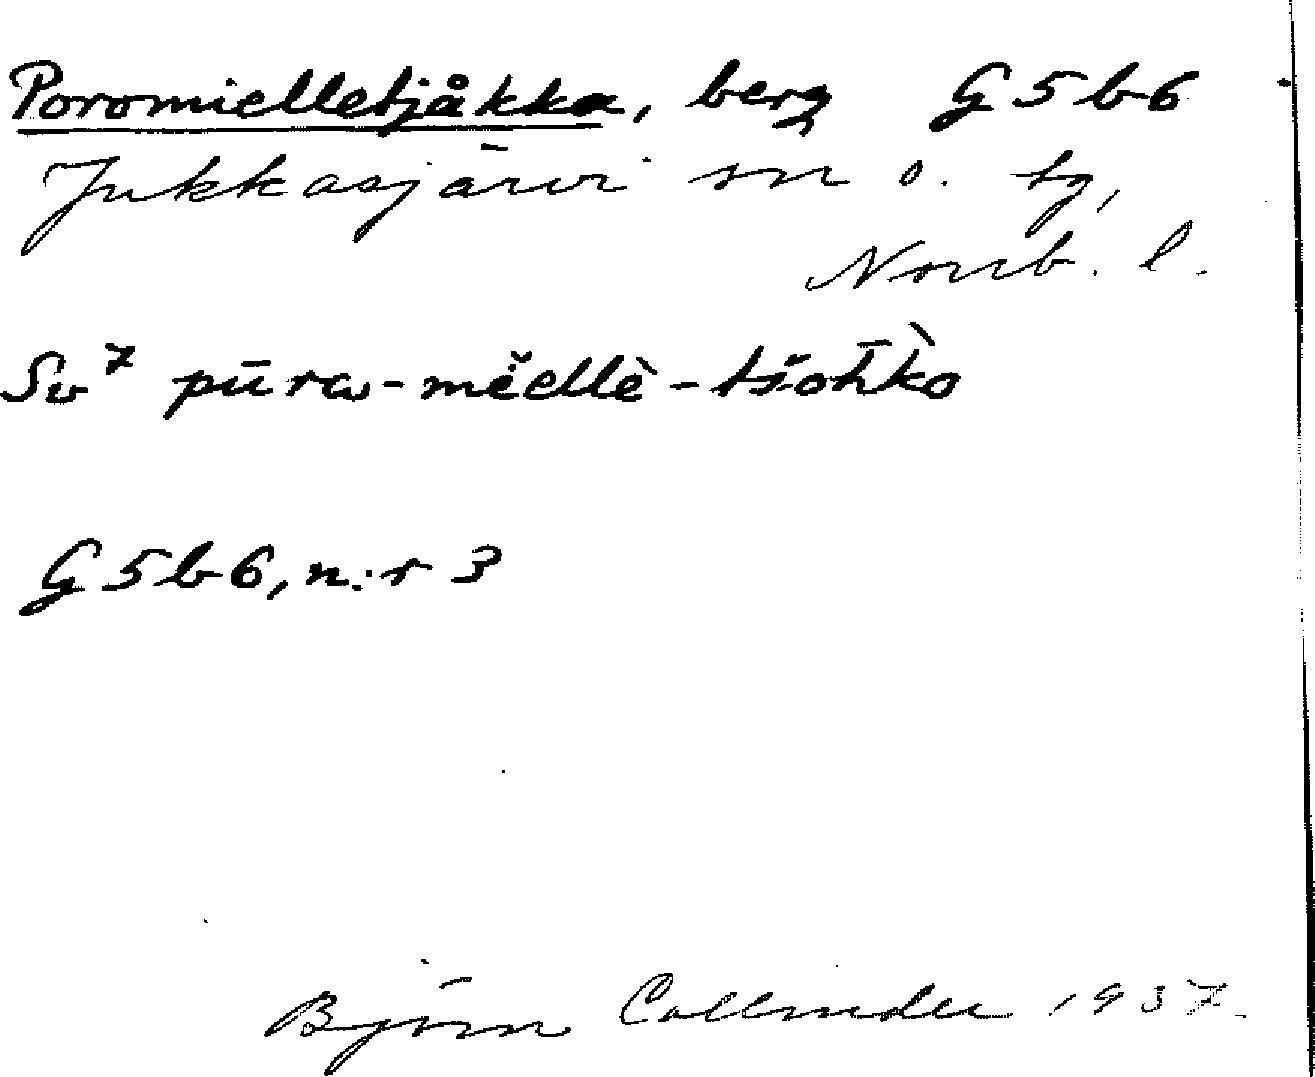 Poromielletjåkka, berg G5b6
Jukkasjärvi sn o. tg,
Norrb. l.
Sv⁷ pūrω-mĕellè-tšoh̄kò
G5b6, n:r 3
Björn Collinder 1937.